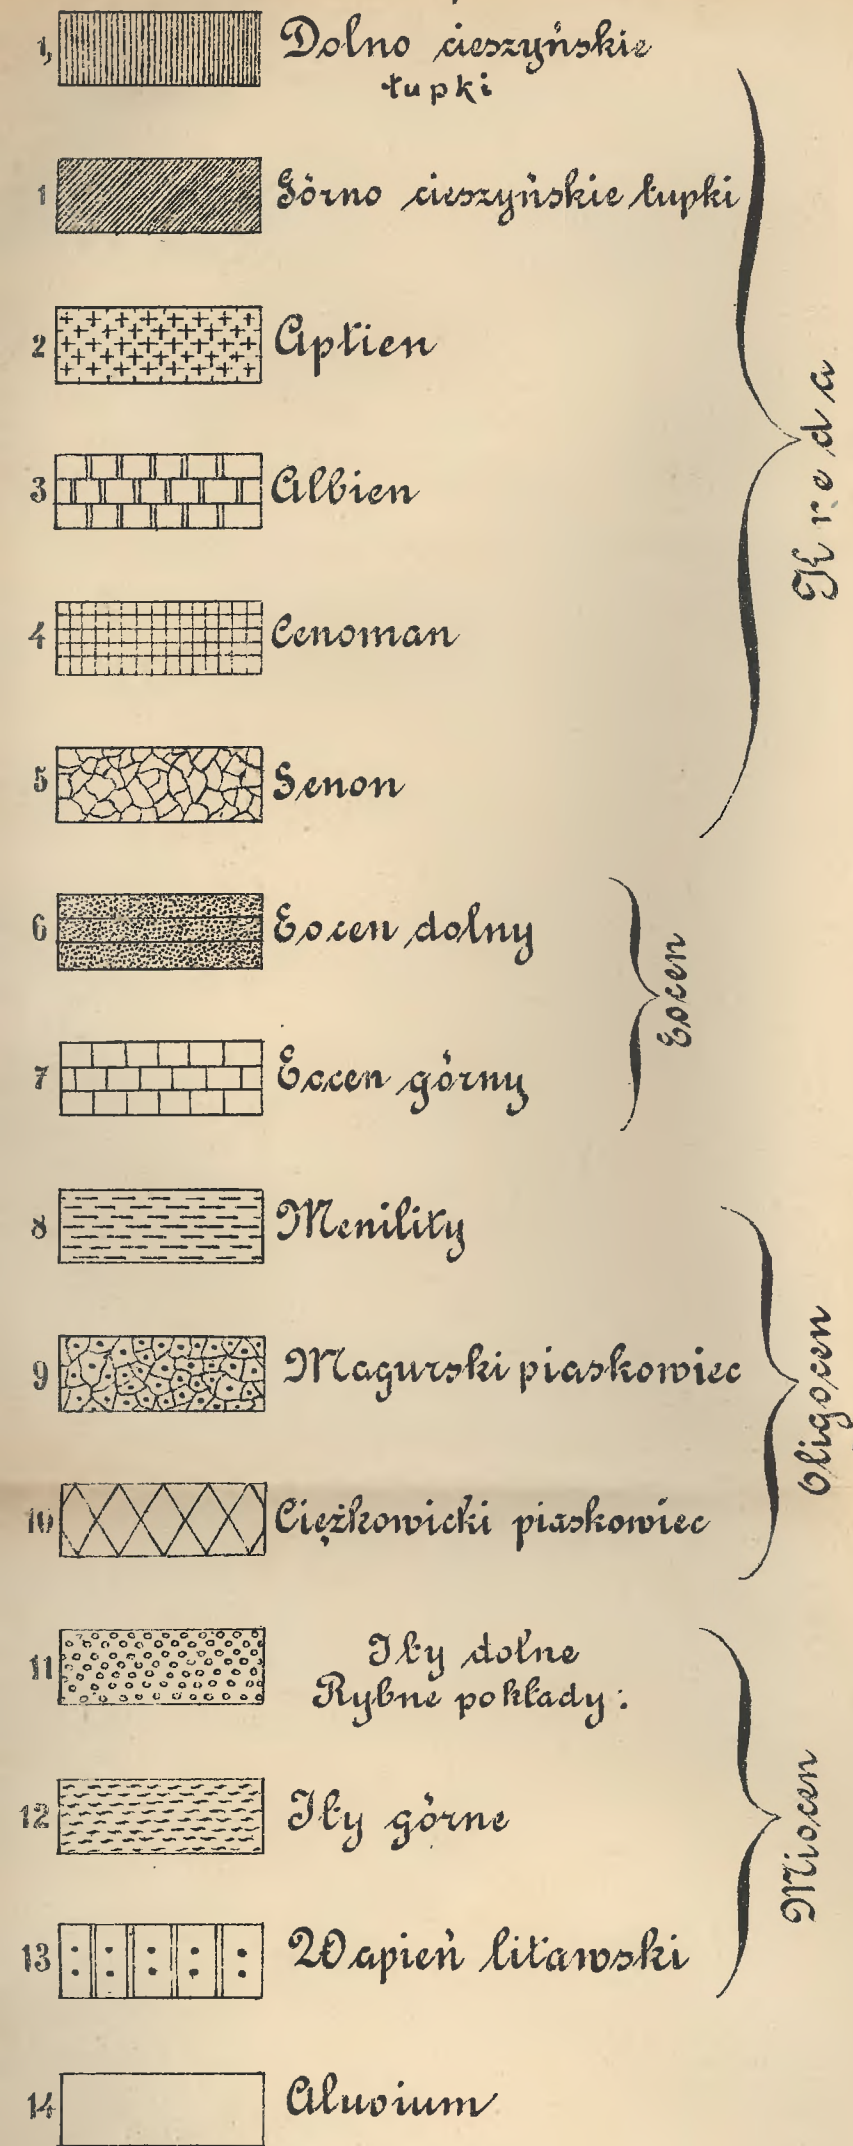 1, Dolno cieszyńskie
łupki
1 Górno cieszyńskie łupki
2 Aptien
3 Albien
4 Cenoman
5 Senon
Kreda
6 Eocen dolny
7 Eocen górny
Eocen
8 Menility
9 Magurski piaskowiec
10 Ciężkowicki piaskowiec
Oligocen
11 Iły dolne
Rybne pokłady:
12 Iły górne
13 Wapień litawski
Miocen
14 Aluvium